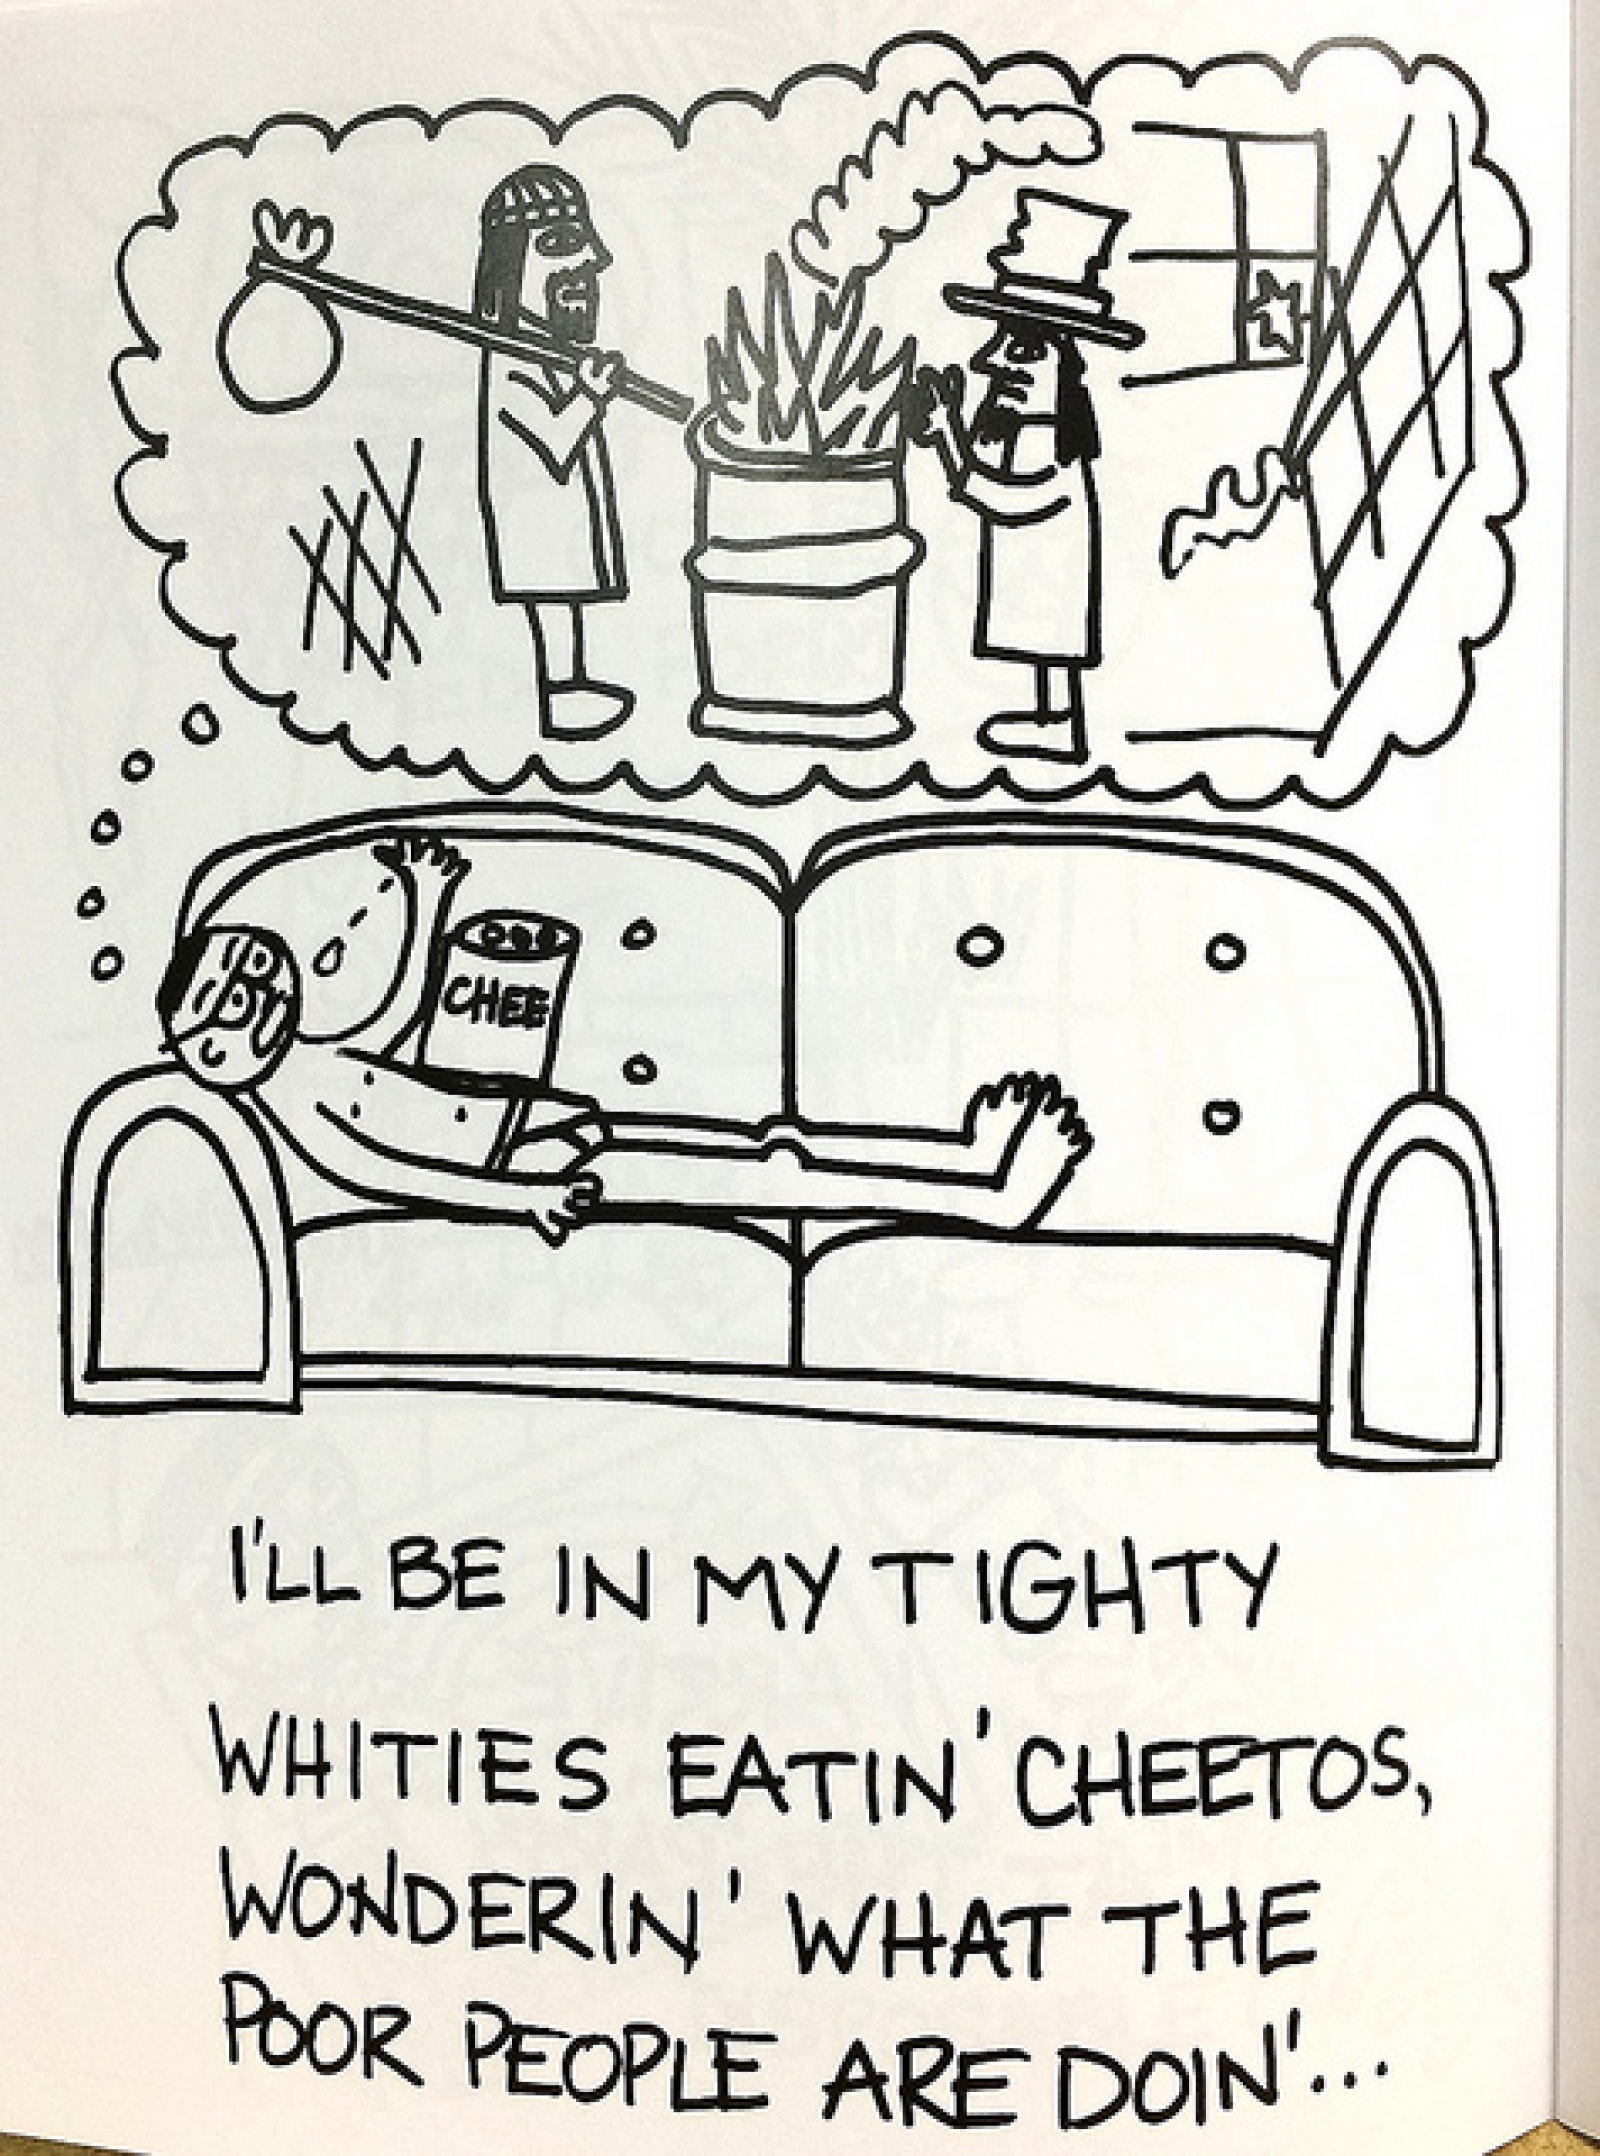 CHEE
I'LL BE IN MY TIGHTY
WHITIES EATIN' CHEETOS,
WONDERIN' WHAT THE
POOR PEOPLE ARE DOIN'...